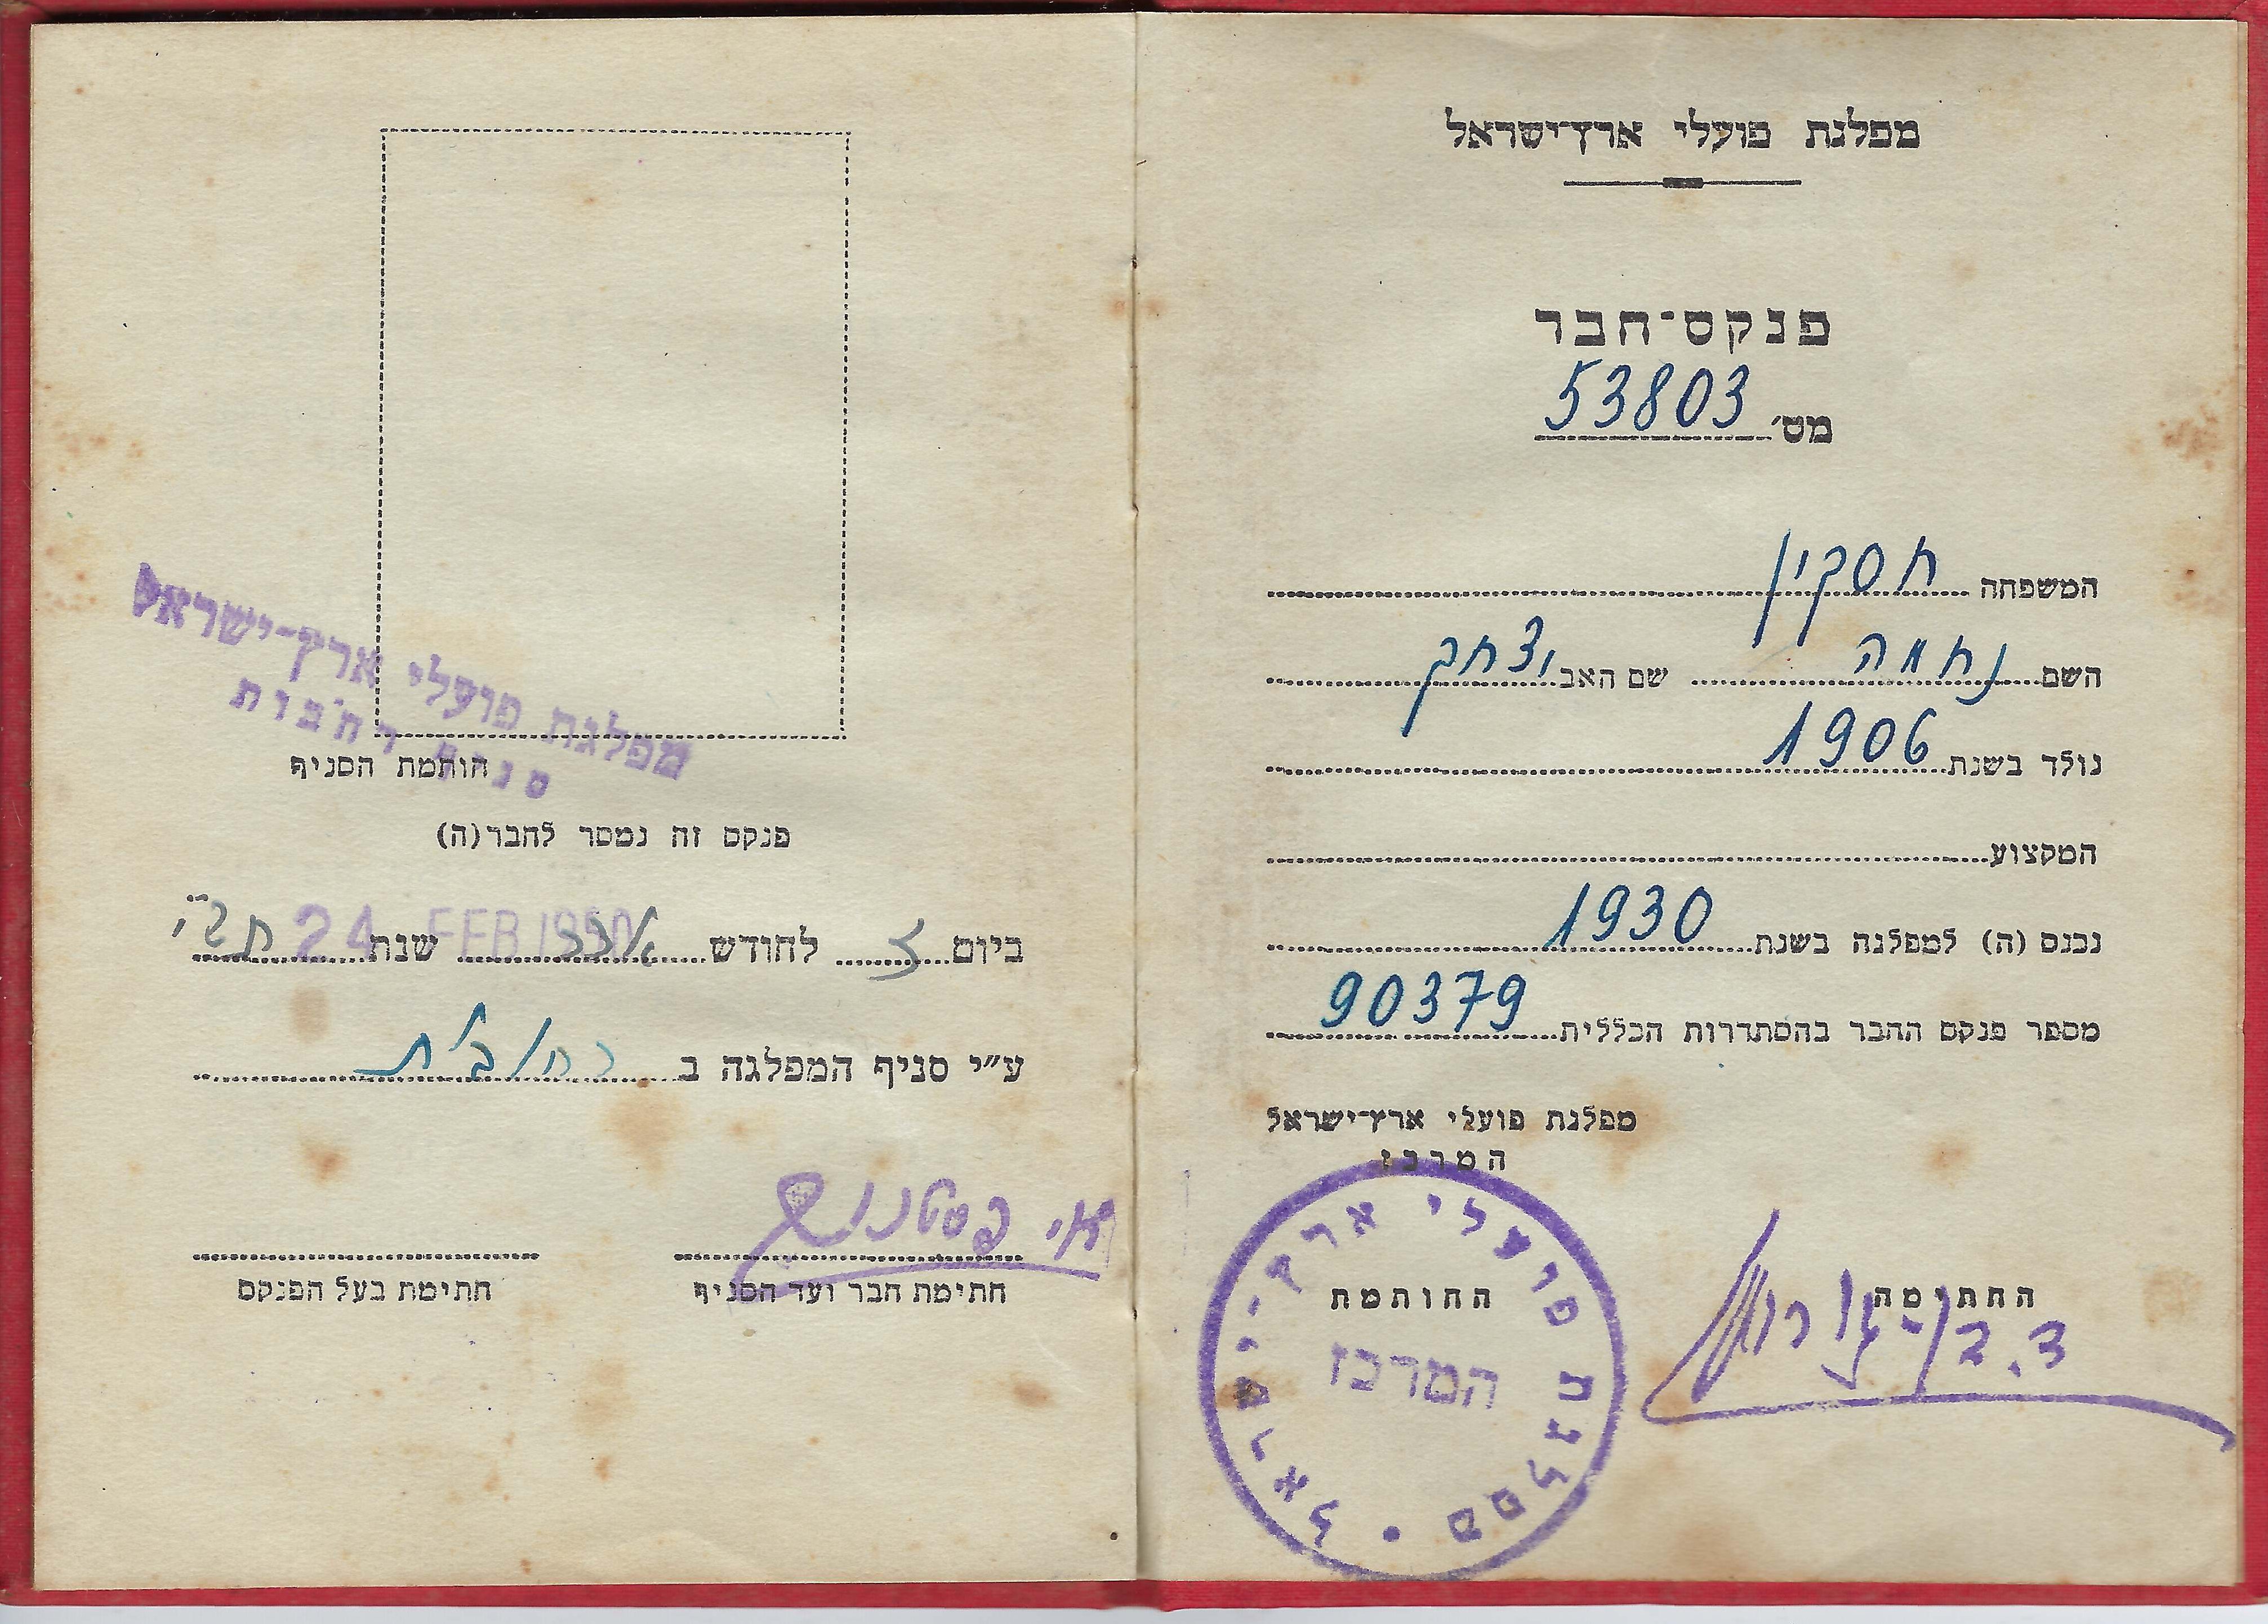 מפלגת פועלי ארץ־ישראל
פנקס־חבר
מס׳ 53803
המשפחה חסקין
השם נחמה שם האב יצחק
נולד בשנת 1906
המקצוע
נכנס (ה) למפלגה בשנת 1930
מספר פנקס החבר בהסתדרות הכללית 90379
מפלגת פועלי ארץ־ישראל
המרכז
החתימה החותמת
ד. בן-גוריון
מפלגת פועלי ארץ-ישראל •
המרכז
מפלגת פועלי ארץ-ישראל
סניף רחובות
חותמת הסניף
פנקס זה נמסר לחבר(ה)
ביום ז לחודש אדר שנת תש"י
24 FEB 1950
ע״י סניף המפלגה ב רחובות
חתימת חבר ועד הסניף חתימת בעל הפנקס